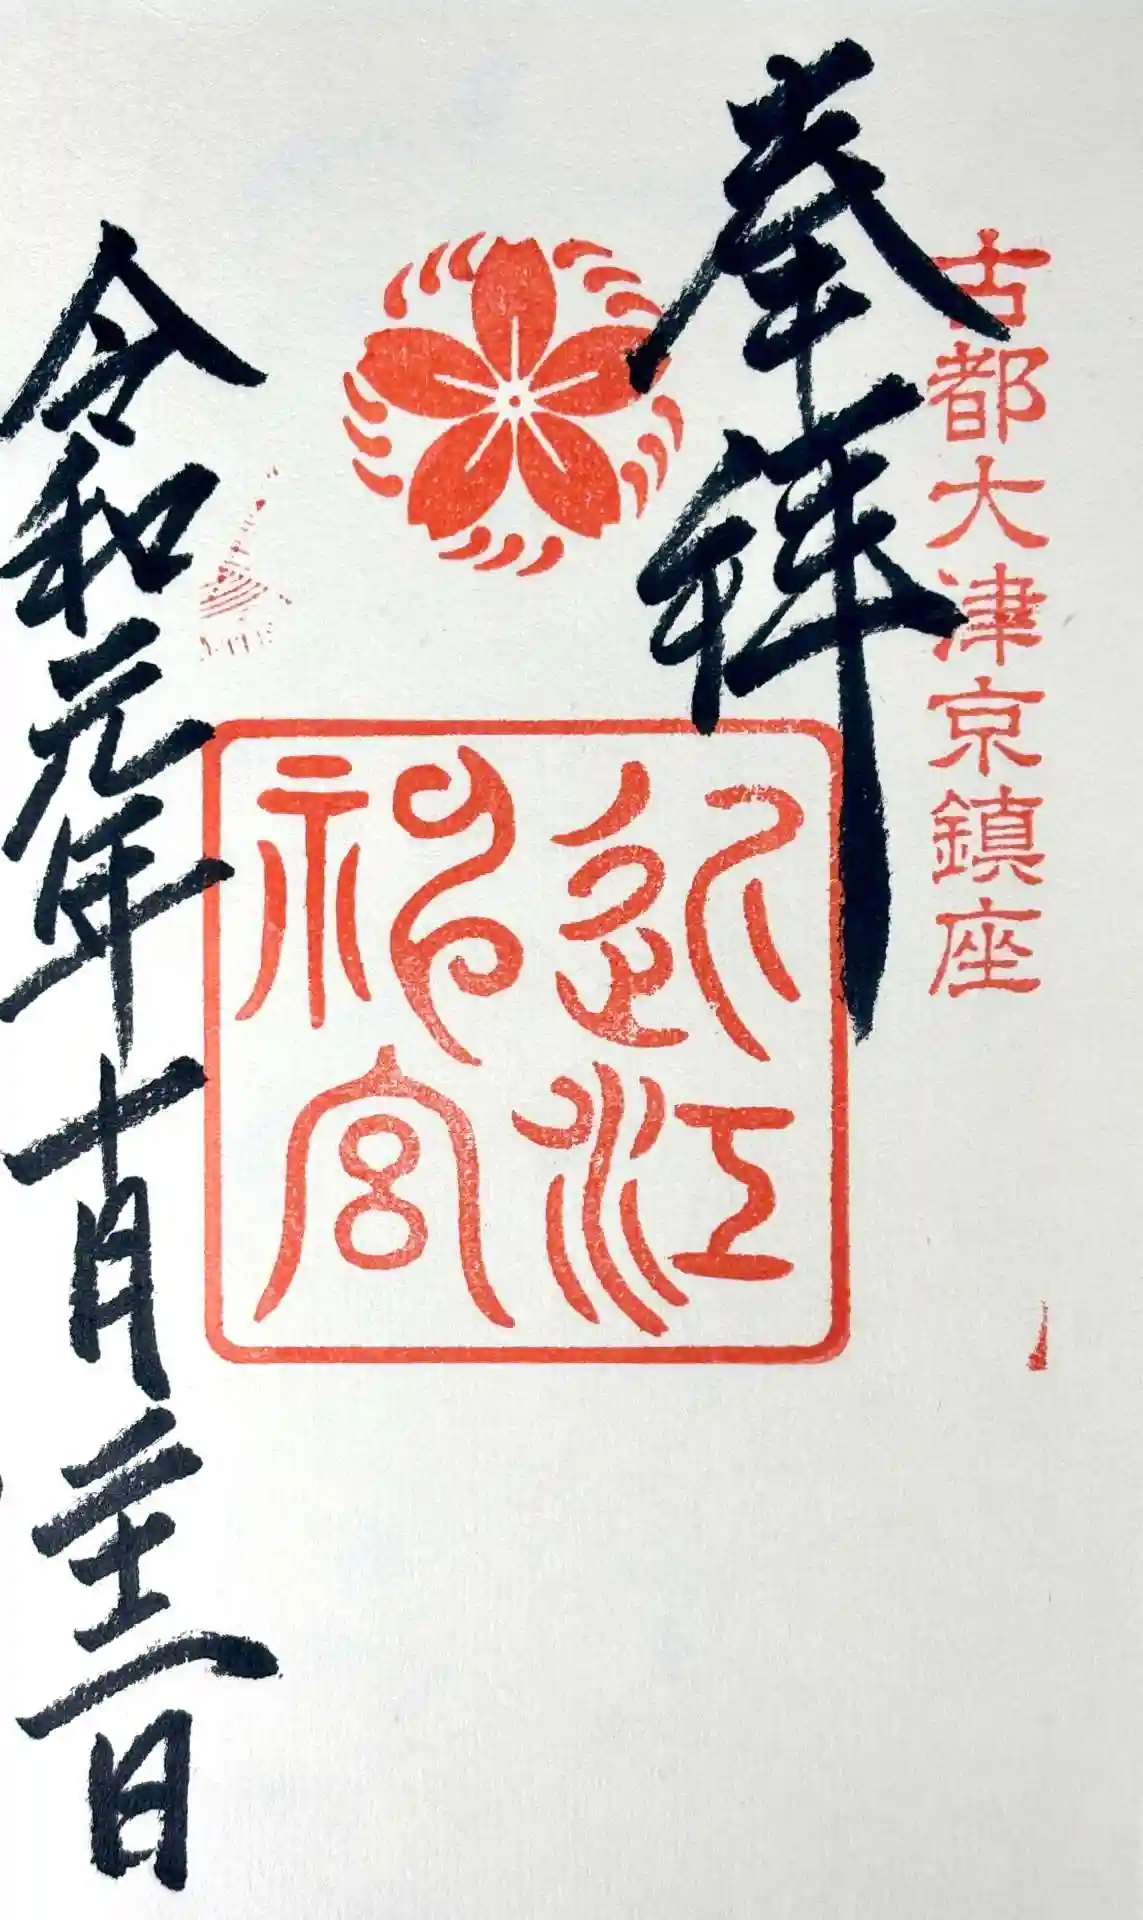 古都大津京鎮座
奉拝
近江
神宮
令和元年十月二十二日